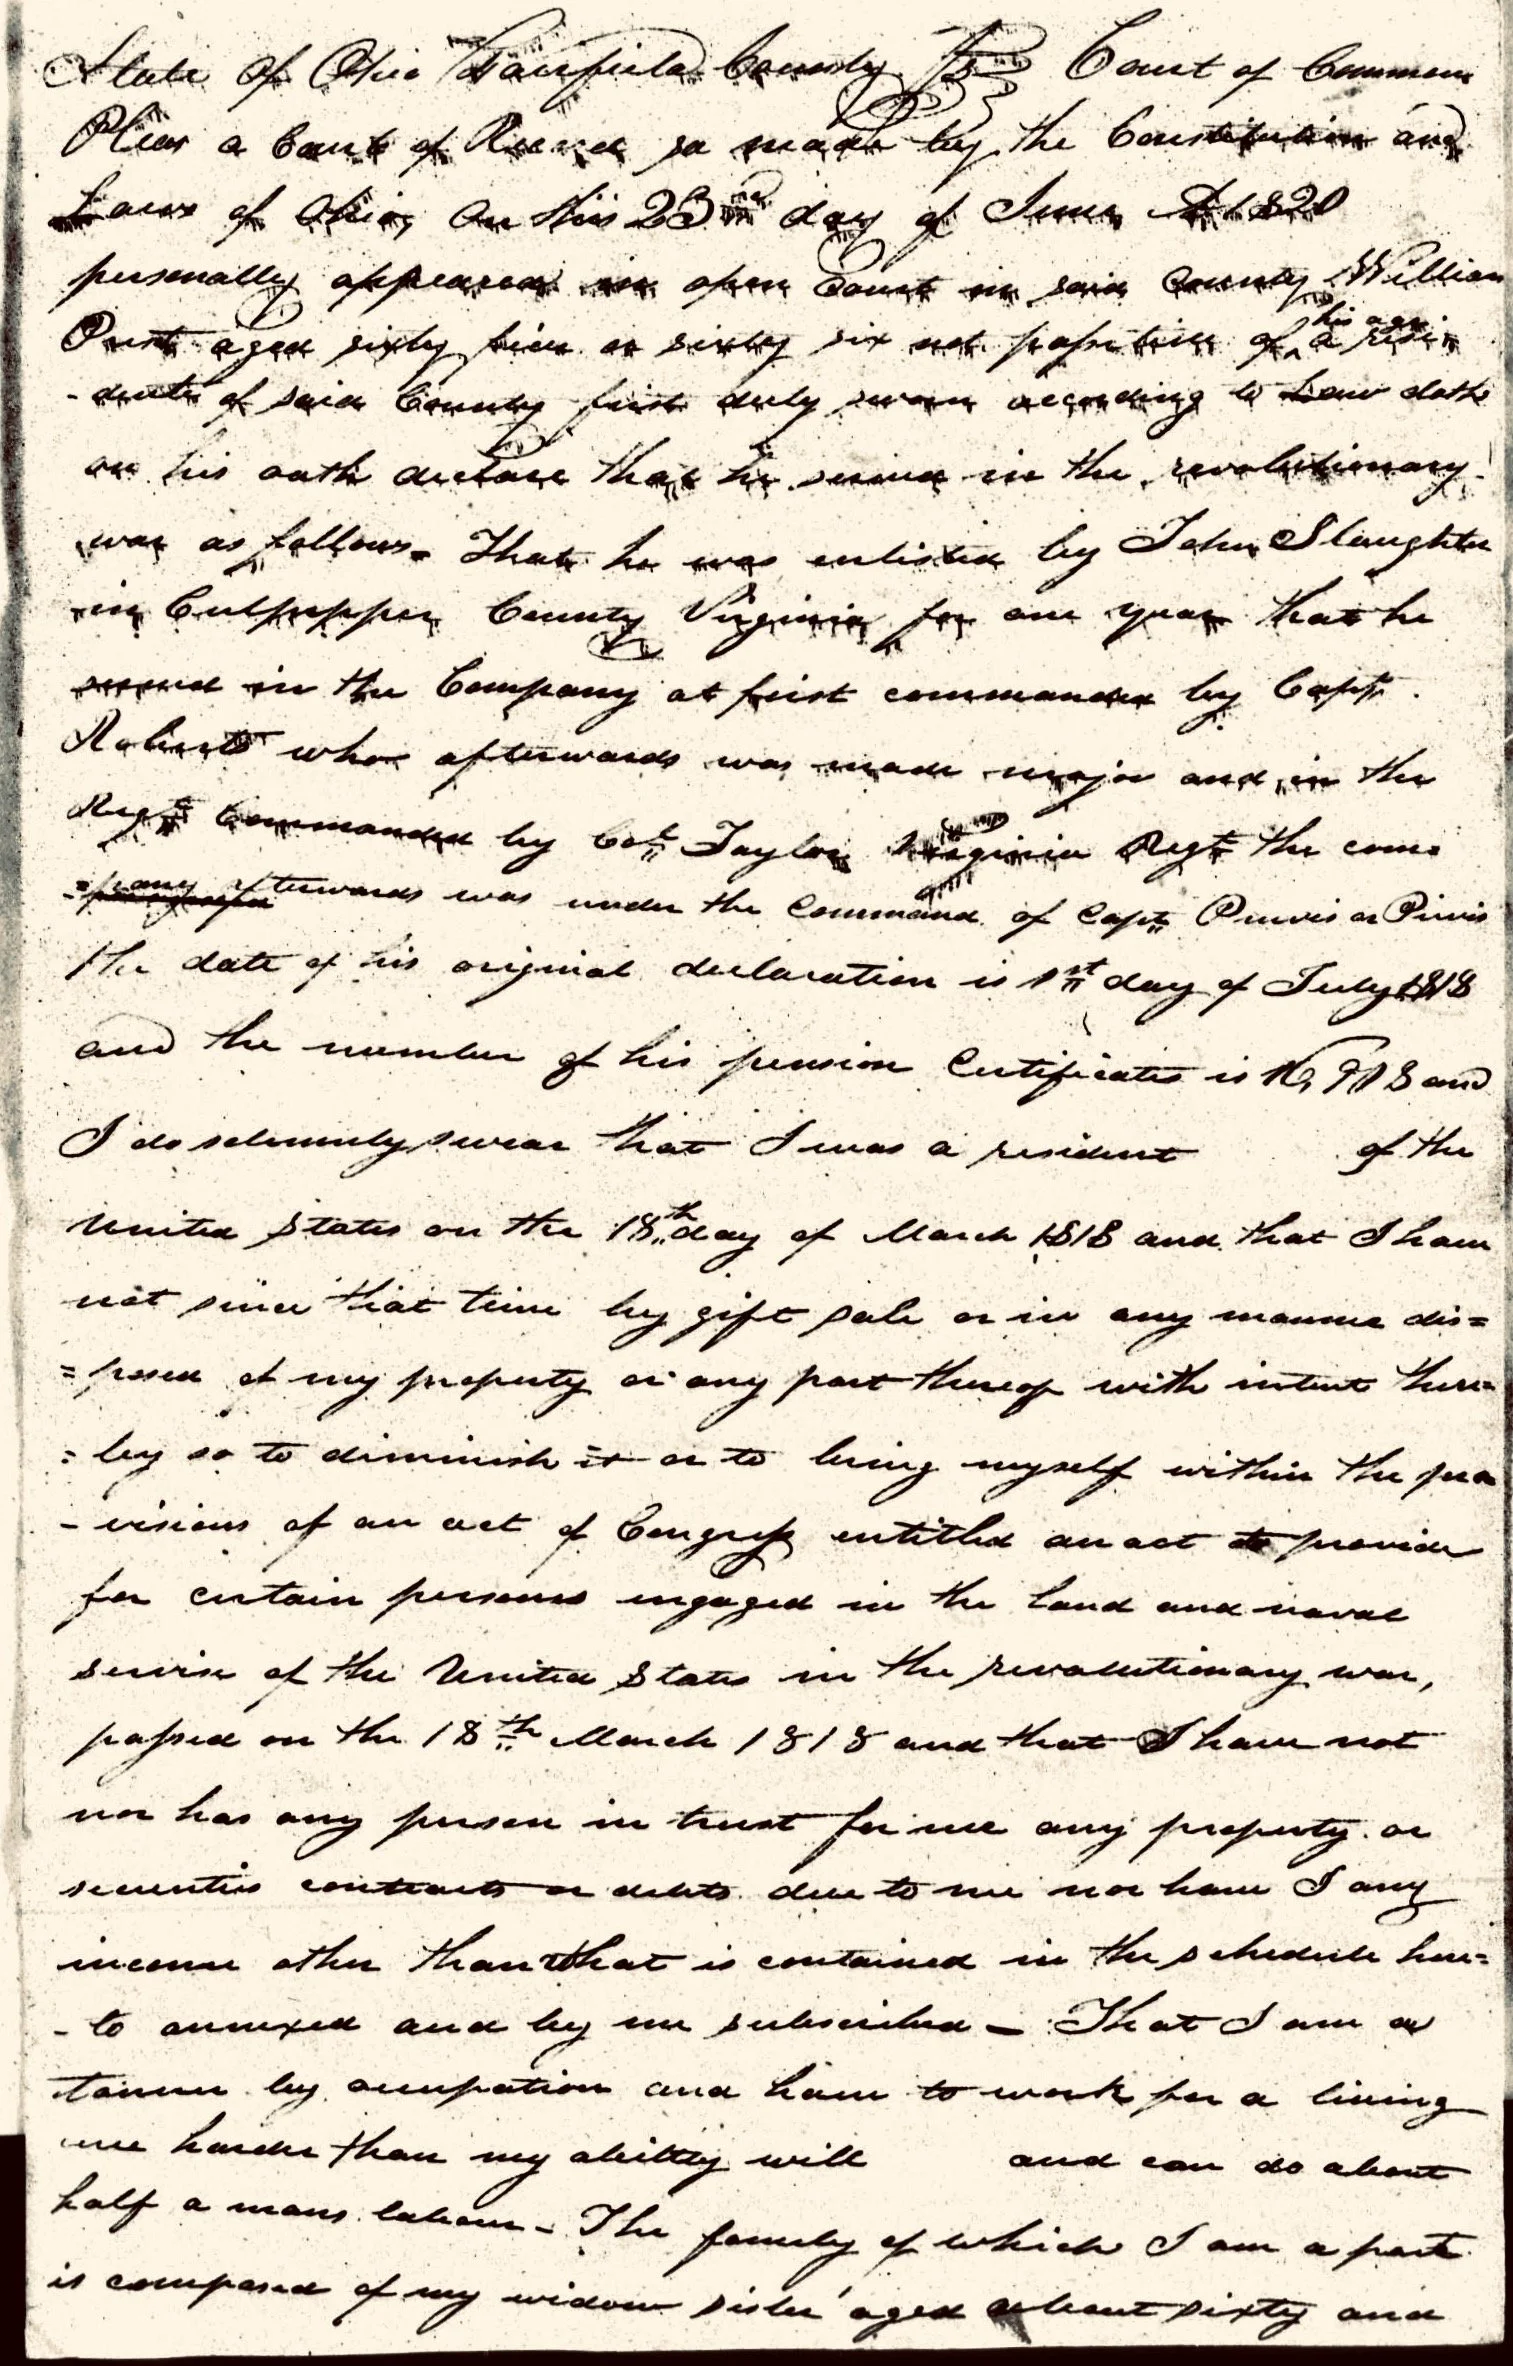 State of Ohio Fairfield County Ss Court of Common
Pleas a Court of Record so made by the Constitution and
Laws of Ohio, On this 23rd day of June AD 1820
personally appeared in open Court in said County William
Pust aged sixty five or sixty six not positive of his age a resi-
-dent of said County first duly sworn according to Law doth
on his oath declare that he served in the revolutionary
war as follows = That he was enlisted by John Slaughter
in Culpepper County Virginia for one year that he
served in the Company at first commanded by Capt.
Roberts who afterwards was made major and in the
Regt Commanded by Col Taylor Virginia Regt the com=
=pany afterwards was under the Command of Capt Purvis or Pirvis
the date of his original declaration is 1st day of July 1818
and the number of his pension Certificate is and
I do solemnly swear that I was a resident of the
United States on the 18th day of March 1818 and that I have
not since that time by gift sale or in any manner dis=
=posed of my property or any part thereof with intent there=
=by so to diminish it or to bring myself within the pro
-visions of an act of Congress entitled an act to provide
for certain persons engaged in the land and naval
servise of the United States in the revolutionary war,
passed on the 18th March 1818 and that I have not
nor has any person in trust for me any property or
securities contracts or debts due to me nor have I any
income other than what is contained in the schedule here=
-to annexed and by me subscribed – That I am a
tanner by occupation and have to work for a living
harder than my ability will and can do about
half a mans labour – The family of which I am a part
is composed of my widow sister aged about sixty and